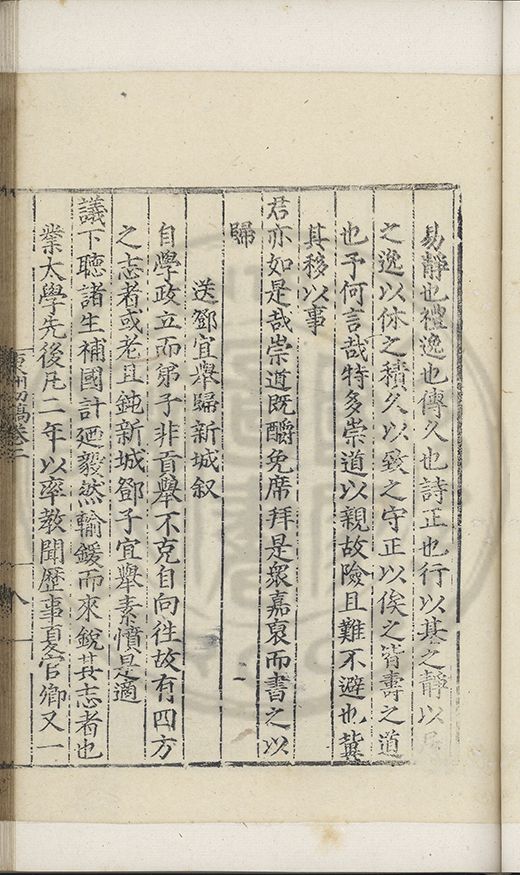 易靜也禮逸也傳久也詩正也行以基之靜以居
之逸以休之積久以致之守正以俟之皆壽之道
也予何言哉特多崇道以親故險且難不避也冀
其移以事
君亦如是哉崇道既醻免席拜是衆嘉裒而書之以
歸
送鄧宜舉歸新城叙
自學政立而弟子非貢舉不克自向徃故有四方
之志者或老且鈍新城鄧子宜舉素憤是適
議下聽諸生補國計廼毅然輸鍰而來銳其志者也
業太學先後凡二年以率教聞歷事夏官卿又一
東洲初稿卷二
八